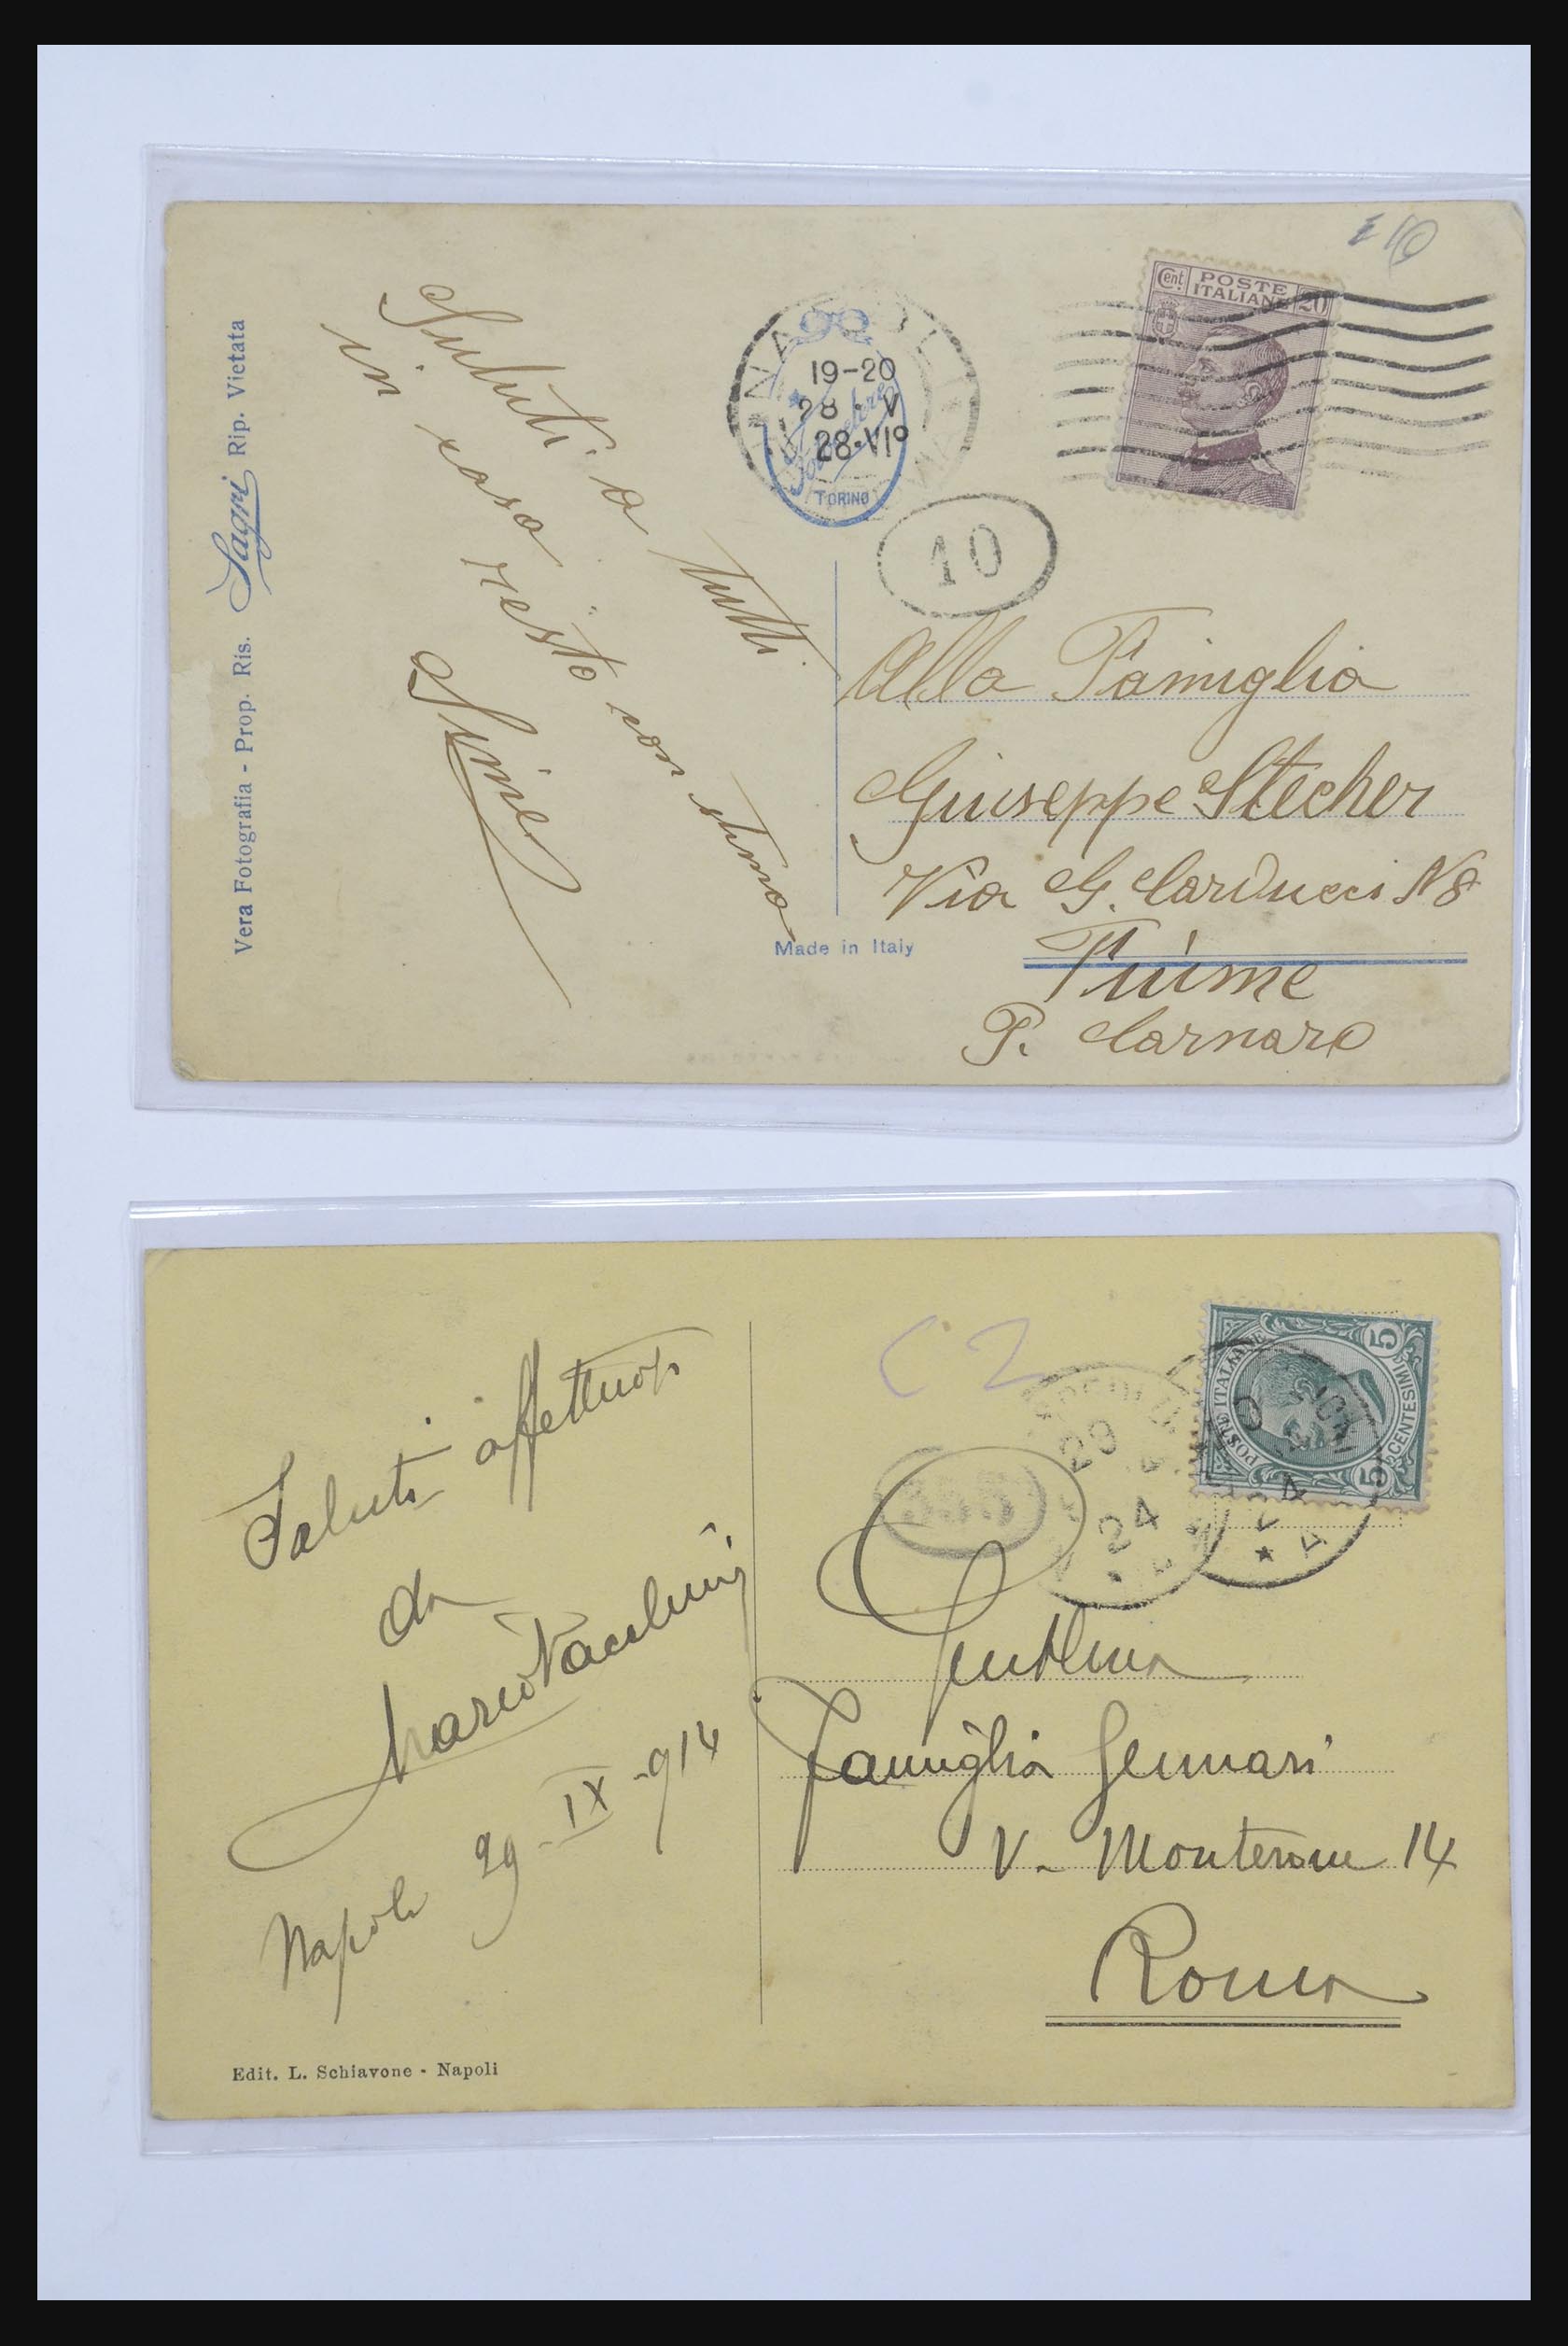 £ 10
Vera Fotografia - Prop. Ris. Sagri Rip. Vietata
Saluti a tutti
in casa resto con stima
NAPOLI
19-20
28 · V
28-VI°
TORINO
10
Cent. POSTE ITALIANE 20
Alla Famiglia
Giuseppe Stecher
Via G. Carducci N 8
Fiume
P. Carnaro
Made in Italy
C 2
POSTE ITALIANE
5 CENTESIMI 5
24
24
Saluti affettuosi
da
Mario
Napoli 29 - IX - 914
Gentilma
Famiglia Gennari
V. Monterone 14
Roma
Edit. L. Schiavone - Napoli